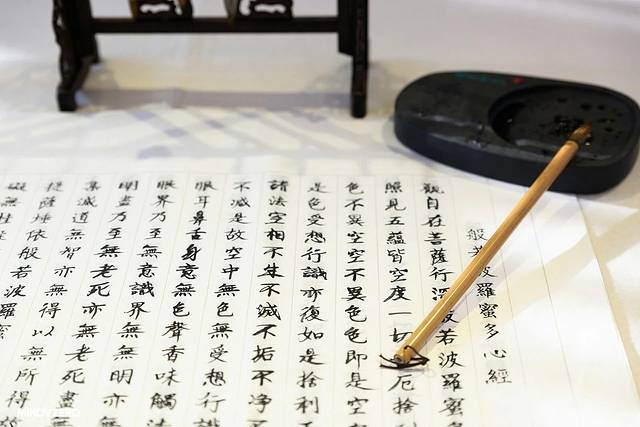 般若波羅蜜多心經
觀自在菩薩行深般若波羅蜜
照見五蘊皆空度一切厄捨
色不異空空不異色色即是空
是色受想行識亦復如是捨利
諸法空相不生不滅不垢不净
不減是故空中無色無受想行識
眼耳鼻舌身意無色聲香味觸法
眼界乃至無意識界無無明亦
明盡乃至無老死亦無老死盡
集滅道無智亦無得以無所得
提薩埵依般若波羅蜜
礙無